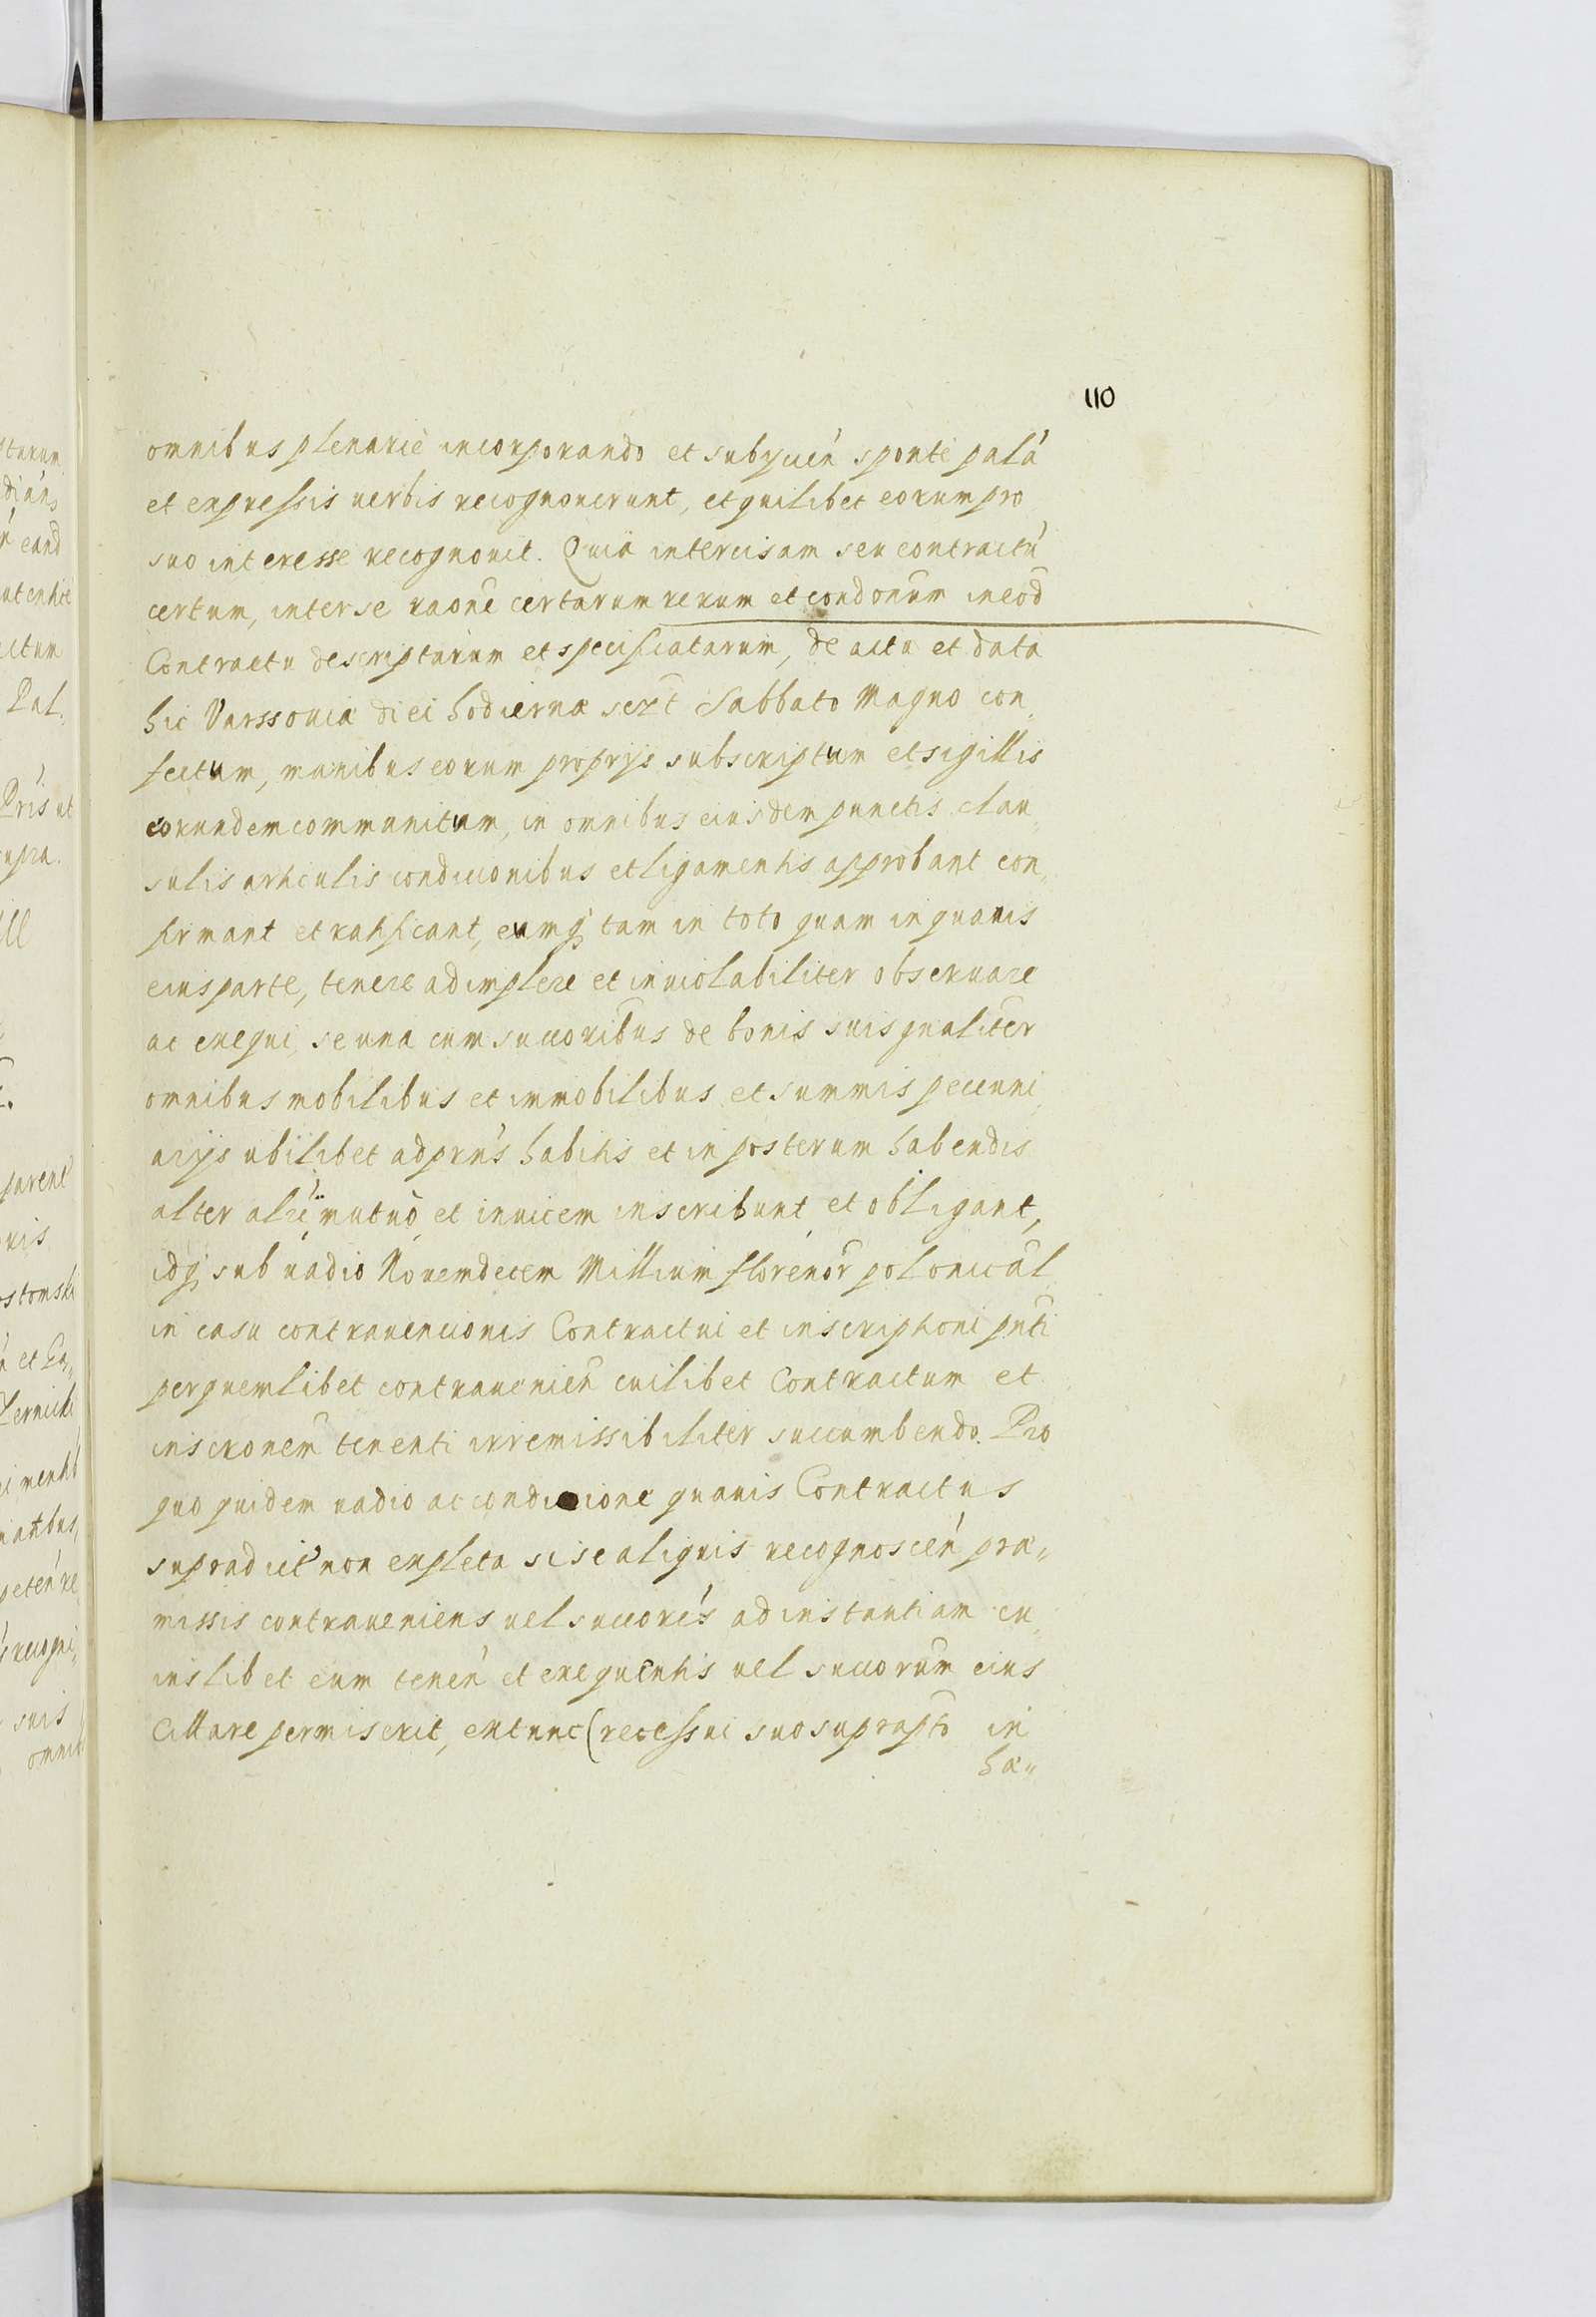 110
omnibus plenarie incorporando et subyciēn sponte palā
et expressis verbis recognoverunt, et quilibet eorum pro
suo interesse recognovit. Quia intercisam seu contractū
certum, inter se raōne certarum rerum et condonūm in eod̄
Contractu descriptarum et specificatarum, de actu et data
hic Varssovia diei hodiernæ sczt Sabbato Magno con„
fectum, manibus eorum proprijs subscriptum et sigillis
eorundem communitum, in omnibus eiusdem punctis clau„
sulis articulis condicionibus et ligamentis approbant con„
firmant et ratificant, eumq; tam in toto quam in quavis
eius parte, tenere adimplere et inviolabiliter observare
ac exequi, se una cum succoribus de bonis suis gnaliter
omnibus mobilibus et immobilibus et summis pecuni„
arijs ubilibet ad prn̄s habitis et in posterum habendis
alter alr̄i mutuò et invicem inscribunt et obligant,
idq; sub vadio Novemdecem Millium florenor̄ polonical̄
in casu contravencionis Contractui et inscriptioni pn̄ti
per quemlibet contraveniēn cuilibet Contractum et
inscronem tenenti irremissibiliter succumbendo. Pro
quo quidem vadio ac condicione quavis Contractus
supradict̄ non expleta si se aliquis recognoscen̄ præ„
missis contraveniens vel succores̄ ad instantiam cu„
iuslibet eum tenen̄ et exequentis vel succorum eius
Cittare permiserit, extunc (recessui suo suprapto in
hæ„
turum
dian̄s
eand̄
Pal.
Pris ut
supra.
ill
parent
vis
suis
omnib